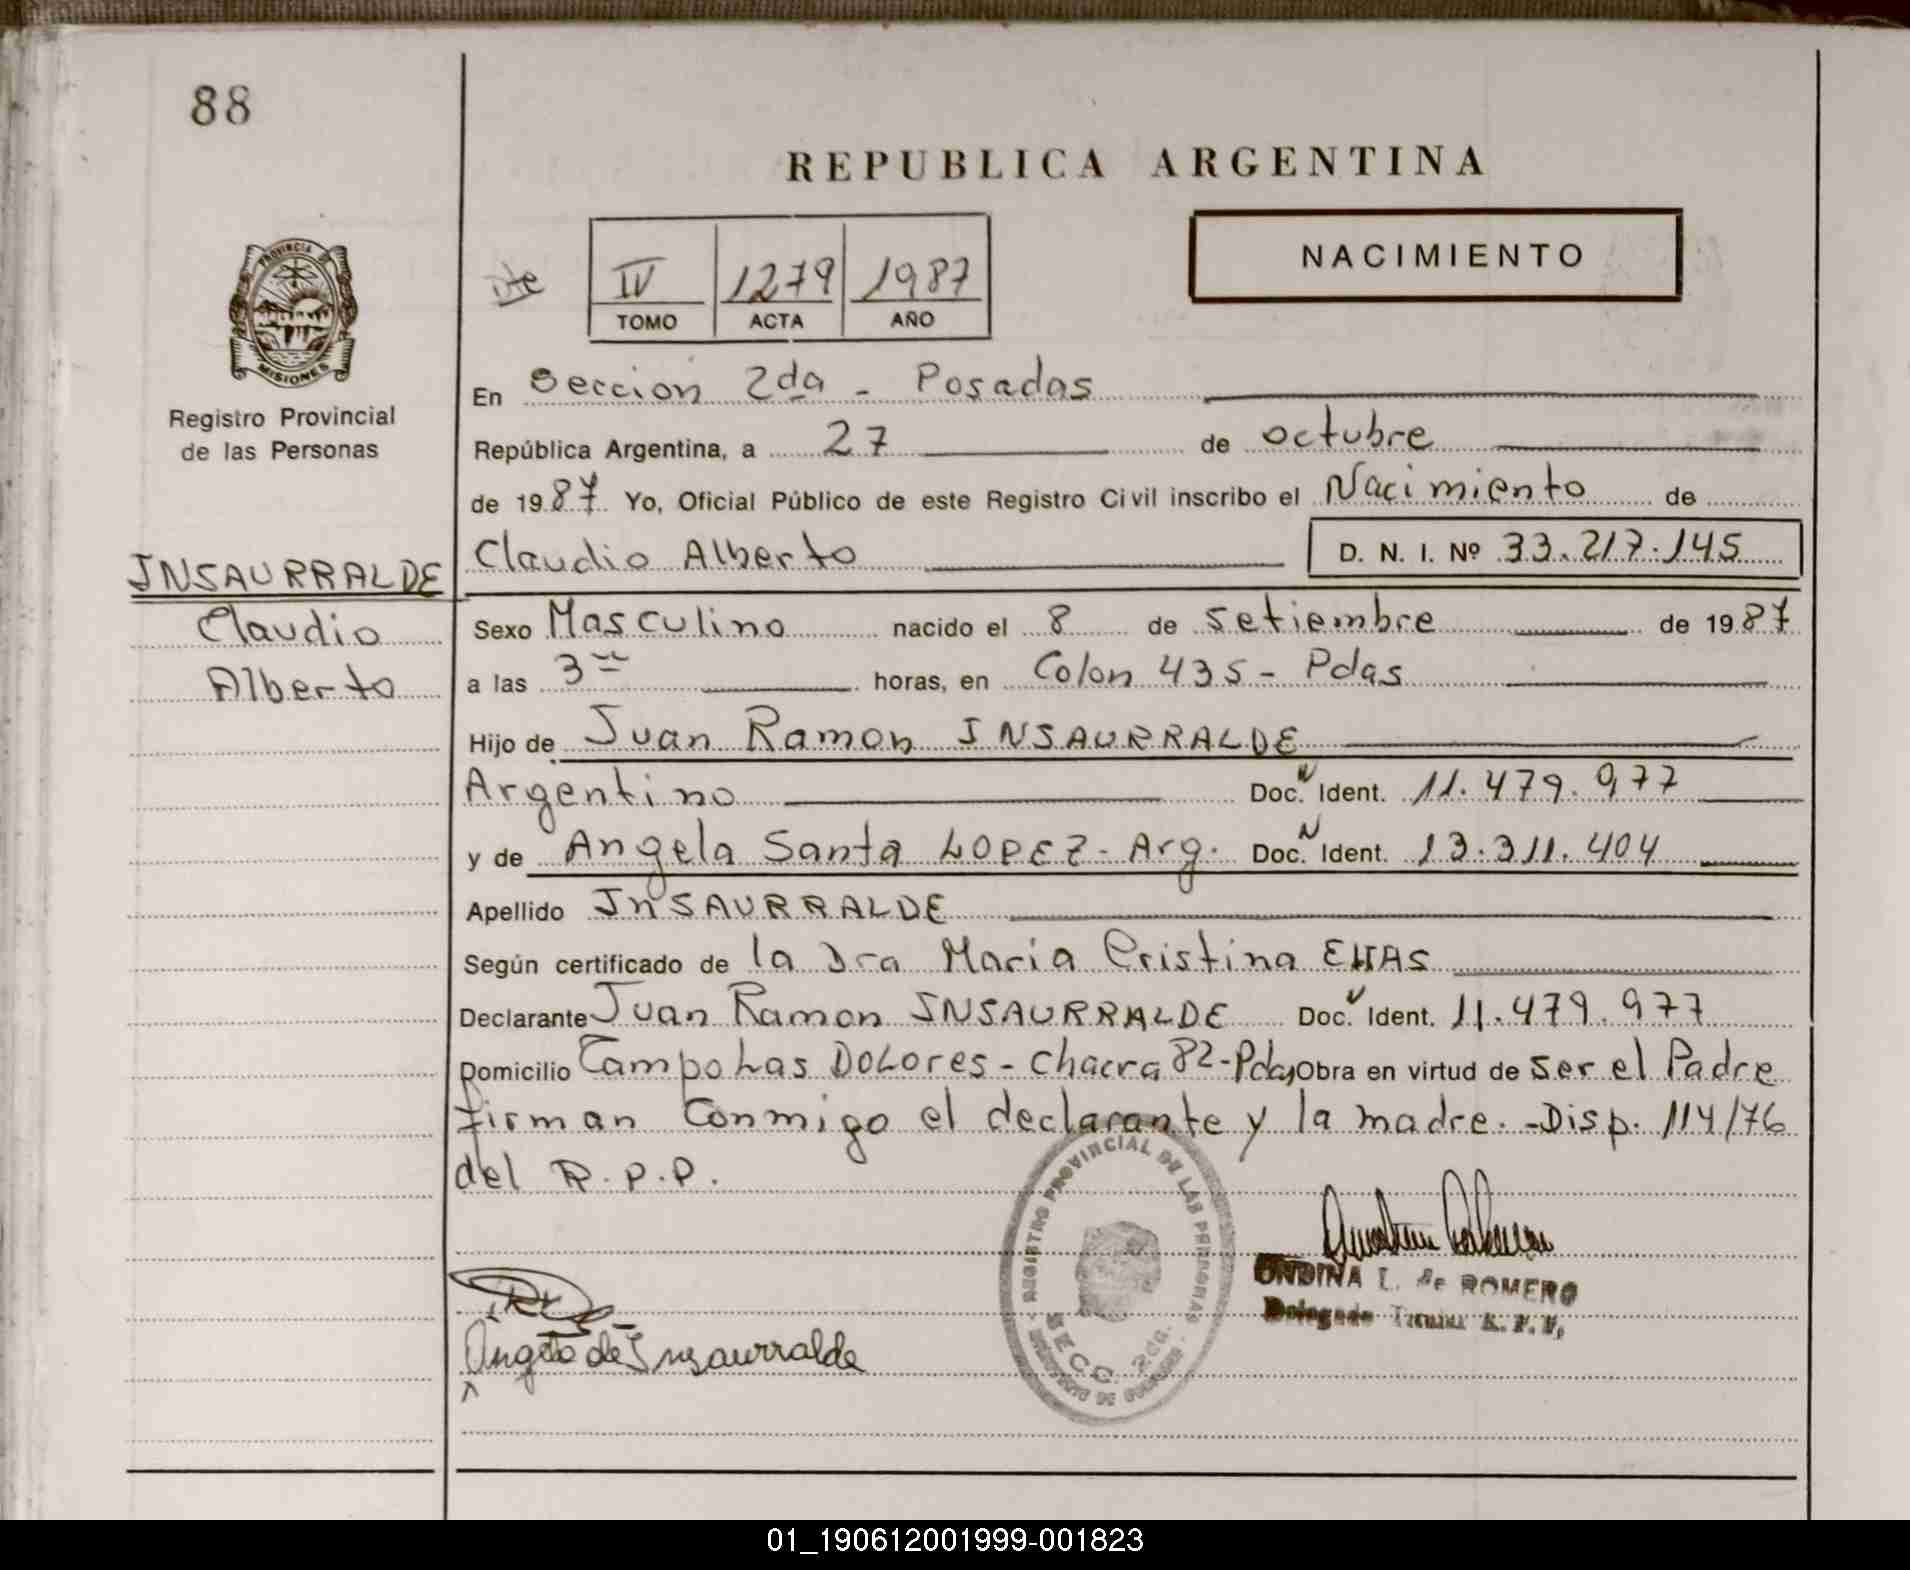 88
REPUBLICA ARGENTINA
NACIMIENTO
IV 1279 1987
TOMO ACTA AÑO
PROVINCIA DE
MISIONES
Registro Provincial
de las Personas
En Seccion 2da - Posadas
República Argentina, a 27 de octubre
de 1987 Yo, Oficial Público de este Registro Civil inscribo el Nacimiento de
Claudio Alberto D. N. I. Nº 33.217.145
INSAURRALDE
Claudio
Alberto
Sexo Masculino nacido el 8 de Setiembre de 1987
a las 3 horas, en Colon 435 - Pdas
Hijo de Juan Ramon INSAURRALDE
Argentino Doc. N Ident. 11.479.977
y de Angela Santa LOPEZ - Arg. Doc. N Ident. 13.311.404
Apellido INSAURRALDE
Según certificado de la Dra Maria Cristina ELIAS
Declarante Juan Ramon INSAURRALDE Doc. Ident. 11.479.977
Domicilio Campo Las DOLORES - Chacra 82 - Pdas Obra en virtud de Ser el Padre
firman conmigo el declarante y la madre. - Disp. 114/76
del R.P.P.
REGISTRO PROVINCIAL DE LAS PERSONAS
SECC. 2da.
MINISTERIO DE GOBIERNO
ONDINA L. de ROMERO
Angela de Insaurralde
01_190612001999-001823